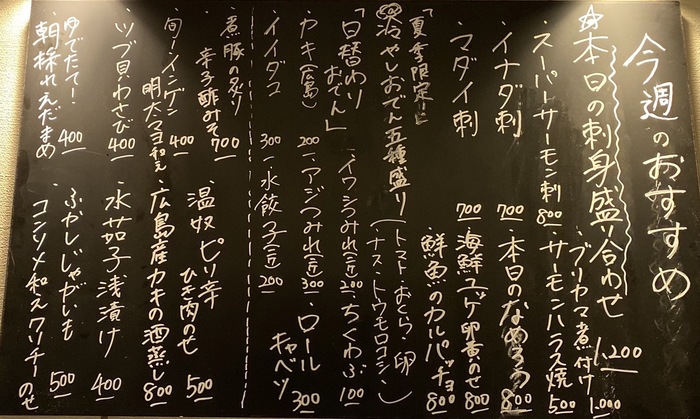 今週のおすすめ
☆本日の刺身盛り合わせ 1,200
・スーパーサーモン刺 800
・ブリカマ煮付け 1,000
・イナダ刺 700
・サーモンハラス焼 500
・マダイ刺 700
・本日のなめろう 800
・海鮮ユッケ卵黄のせ 800
・鮮魚のカルパッチョ 800
「夏季限定」
冷やしおでん五種盛り(トマト・おくら・卵
・ナス・トウモロコシ)
「日替わり
おでん」
・イワシつみれ(近) 200
・ちくわぶ 100
・カキ(広島) 200
・アジつみれ(近) 300
・ロール
キャベツ 300
・イイダコ 300
・水餃子(近) 200
・煮豚の炙り
辛子酢みそ 700
・温奴ピリ辛
ひき肉のせ 500
・旬!インゲン
明太マヨ和え 400
・広島産カキの酒蒸し 800
・ツブ貝わさび 400
・水茄子浅漬け 400
・ゆでたて!
朝採れえだまめ 400
・ふかしじゃがいも
コンソメ和えクリチーのせ 500